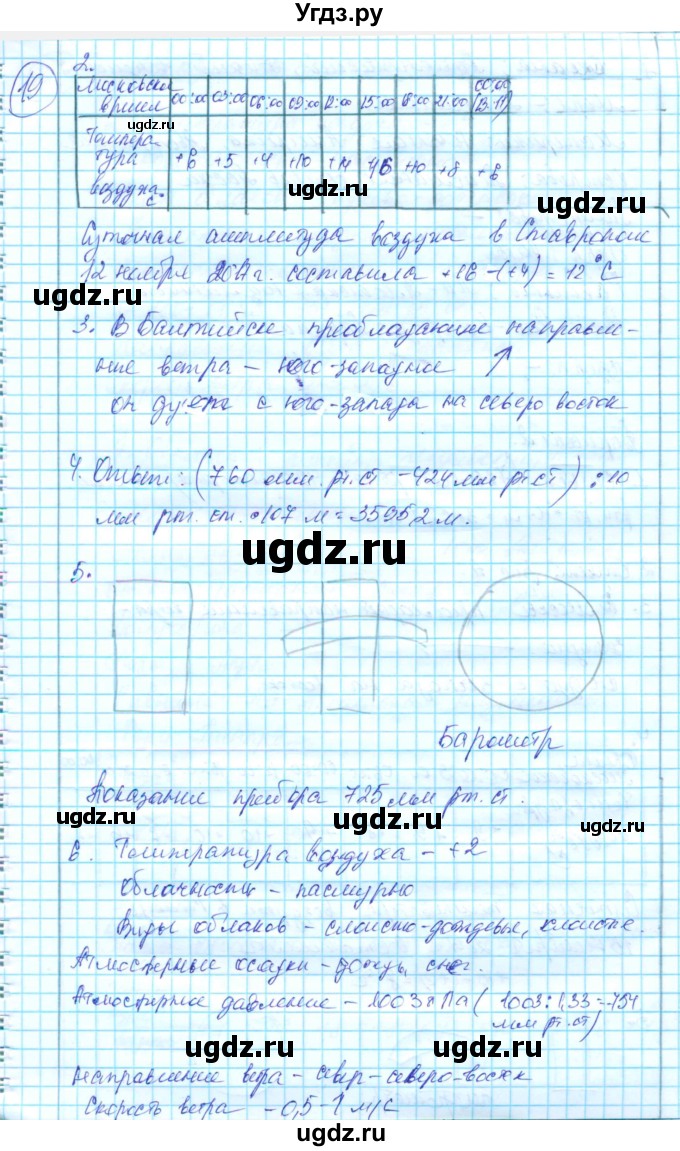 Угдз.ру
19
2.
Московское время 00:00 03:00 06:00 09:00 12:00 15:00 18:00 21:00 00:00 (13.11)
Темпера
тура
воздуха °С +6 +5 +4 +10 +14 +16 +10 +8 +6
ugdz.ru
ugdz.ru
Суточная амплитуда воздуха в Ставрополе
12 ноября 2017г. составила +16-(+4) = 12°С
ugdz.ru ugdz.ru
3. В Балтийске преобладающие направле-
ние ветра – юго-западные
он дует с юго-запада на северо восток
4. Ответ: (760 мм. рт. ст - 424 мм рт. ст) : 10
мм рт. ст. • 107 м = 3595,2 м.
ugdz.ru ugdz.ru
5.
Барометр
Показание прибора 725 мм рт. ст.
ugdz.ru ugdz.ru ugdz.ru
6. Температура воздуха – +2
Облачность – пасмурно
Виды облаков – слоисто-дождевые, слоистые.
Атмосферные осадки – дождь, снег.
ugdz.ru
Атмосферное давление – 1003 гПа (1003 : 1,33 = 754
мм рт. ст)
ugdz.ru ugdz.ru
Направление ветра – север-северо-восток
Скорость ветра – 0,5-1 м/с
ugdz.ru